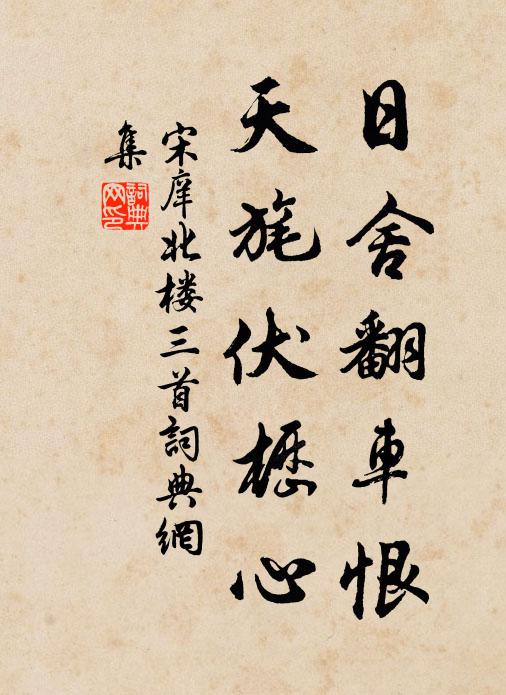 日舍翻車恨
天旄伏櫪心
宋庠北楼三首詞典網
集
詞典
网印